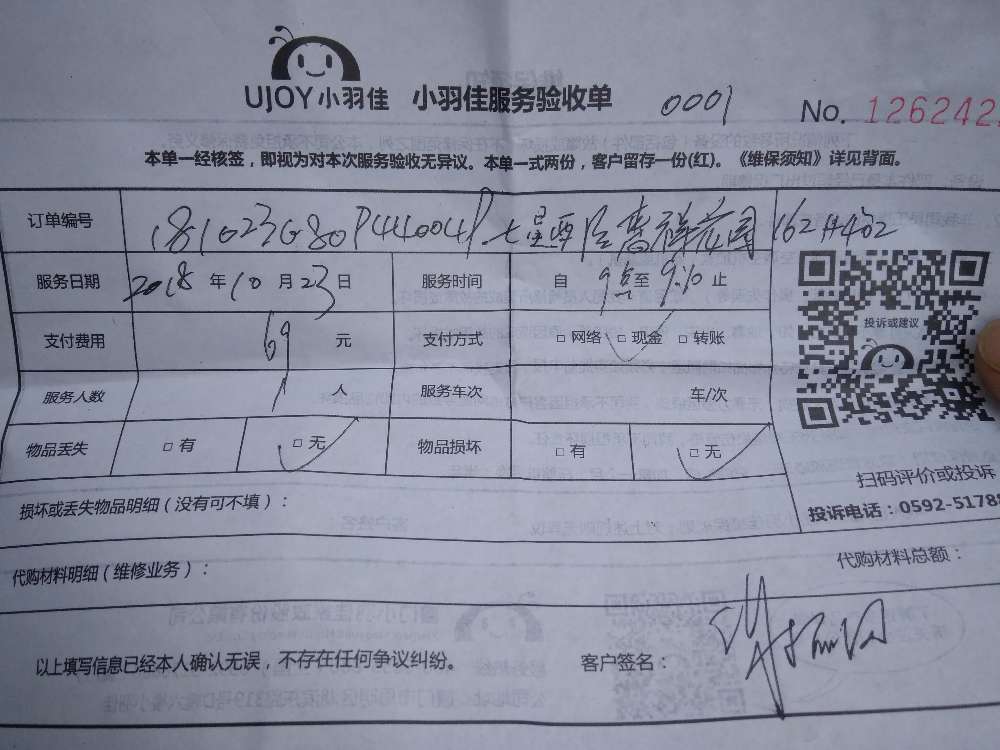 UJOY小羽佳 小羽佳服务验收单 0001 No. 126242
本单一经核签，即视为对本次服务验收无异议。本单一式两份，客户留存一份(红)。《维保须知》详见背面。
订单编号 181023G80P44004P 七星西路 祥花园 162#402
服务日期 2018 年 10 月 23 日 服务时间 自 9点 至 9:10 止
支付费用 69 元 支付方式 □ 网络 □ 现金 □ 转账
投诉或建议
服务人数 1 人 服务车次 车/次
物品丢失 □ 有 □ 无 物品损坏 □ 有 □ 无
扫码评价或投诉
损坏或丢失物品明细（没有可不填）：
投诉电话：0592-5178
代购材料明细（维修业务）：
代购材料总额：
以上填写信息已经本人确认无误，不存在任何争议纠纷。 客户签名：